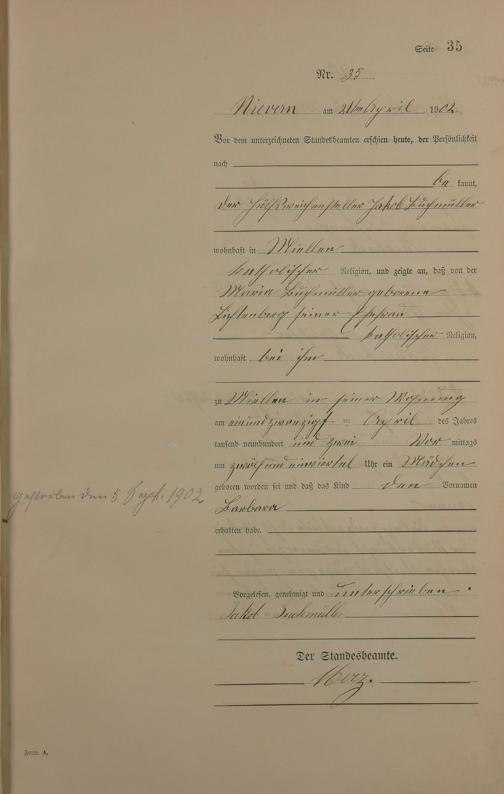 Seite 35
Nr. 35
Nievern am 21ten April 1902
Vor dem unterzeichneten Standesbeamten erschien heute, der Persönlichkeit
nach
be kannt,
der Hülfsweichensteller Jakob Buchmüller
wohnhaft in Miellen
katholischer Religion, und zeigte an, daß von der
Maria Buchmüller geborene
Lichtenberg seiner Ehefrau
katholischer Religion,
wohnhaft bei ihm
zu Miellen in seiner Wohnung
am einundzwanzigst en April des Jahres
tausend neunhundert und zwei Vor mittags
um zwölf und einviertel Uhr ein Mädchen
geboren worden sei und daß das Kind den Vornamen
Barbara
erhalten habe.
gestorben den 5 Sept. 1902
Vorgelesen, genehmigt und unterschrieben.
Jakob Buchmüller
Der Standesbeamte.
Merz.
Form. A.